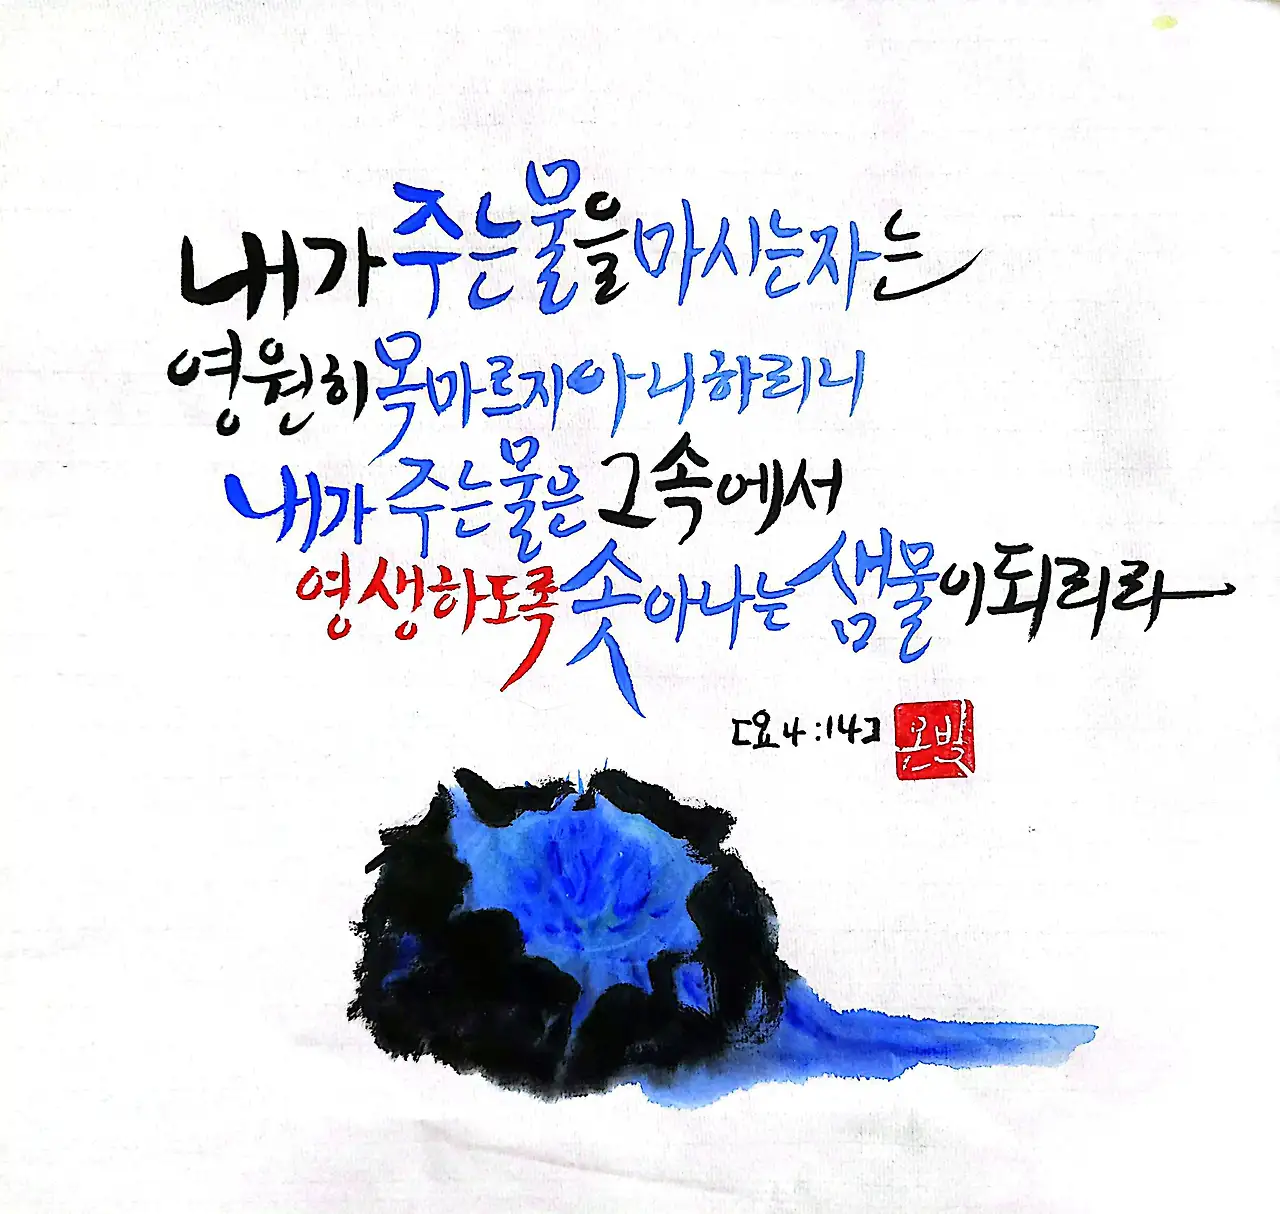 내가 주는 물을 마시는 자는
영원히 목마르지 아니하리니
내가 주는 물은 그 속에서
영생하도록 솟아나는 샘물이 되리라
[요 4:14]